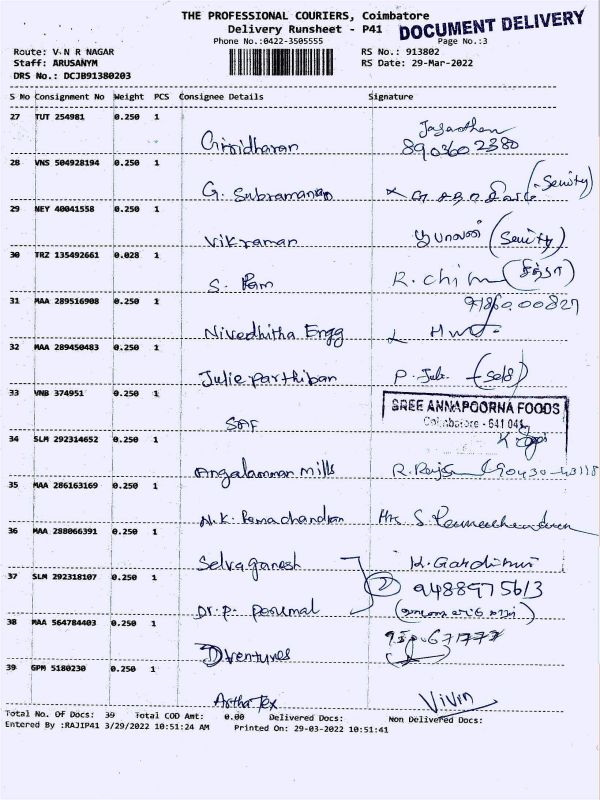 THE PROFESSIONAL COURIERS, Coimbatore
Delivery Runsheet - P41
DOCUMENT DELIVERY
Phone No.:0422-3505555
Page No.:3
Route: V N R NAGAR
RS No.: 913802
Staff: ARUSANYM
RS Date: 29-Mar-2022
DRS No.: DCJB91380203
S No Consignment No Weight PCS Consignee Details Signature
27 TUT 254981 0.250 1
Giridharan 8903602380
28 VNS 504928194 0.250 1
G. Subramanian
29 NEY 40041558 0.250 1
Vikraman
30 TRZ 135492661 0.028 1
S. Ram R. chi (சித்ரா)
31 MAA 289516908 0.250 1
Nivedhitha Engg
32 MAA 289450483 0.250 1
Julie parthiban P. Jule (self)
33 VNB 374951 0.250 1
SREE ANNAPOORNA FOODS
SAF Coimbatore - 641 041.
34 SLM 292314652 0.250 1
Angalamman mills
35 MAA 286163169 0.250 1
N.K. Ramachandran Mrs S.
36 MAA 288066391 0.250 1
Selvaganesh
37 SLM 292318107 0.250 1
2 9488975613
Dr. P. Perumal
38 MAA 564784403 0.250 1
D ventures
39 GPM 5180230 0.250 1
Artha Tex Vivin
Total No. Of Docs: 39 Total COD Amt: 0.00 Delivered Docs: Non Delivered Docs:
Entered By :RAJIP41 3/29/2022 10:51:24 AM Printed On: 29-03-2022 10:51:41